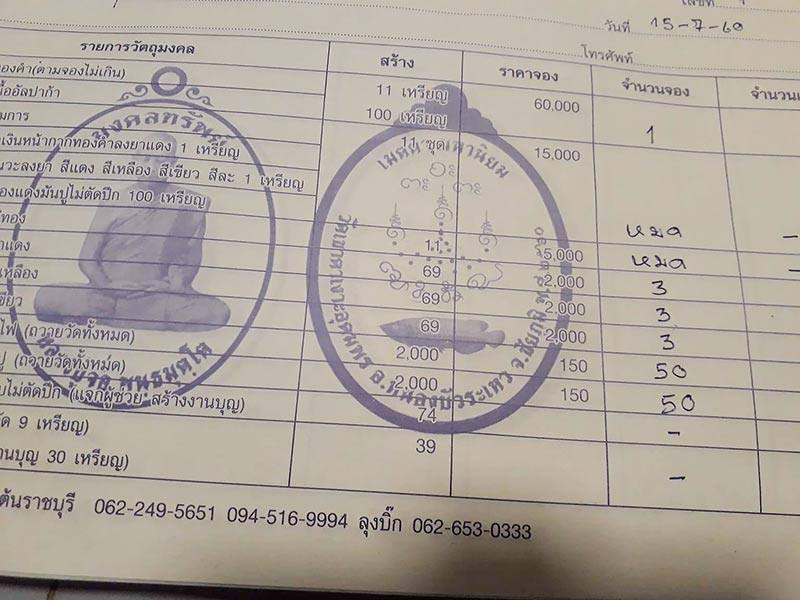 เลขที่
วันที่ 15-7-60
โทรศัพท์
รายการวัตถุมงคล สร้าง ราคาจอง จำนวนจอง
องคำ(ตามจองไม่เกิน) 11 เหรียญ 60,000 1
นื้ออัลปาก้า 100 เหรียญ
มการ 11 ชุด 15,000
เงินหน้ากากทองคำลงยาแดง 1 เหรียญ
นวะลงยา สีแดง สีเหลือง สีเขียว สีละ 1 เหรียญ
องแดงมันปูไม่ตัดปีก 100 เหรียญ
ทอง 11 5,000 หมด
แดง 69 2,000 หมด
เหลือง 69 2,000 3
ขียว 69 2,000 3
ไฟ (ถวายวัดทั้งหมด) 2,000 150 3
ปู (ถวายวัดทั้งหมด) 2,000 150 50
บไม่ตัดปีก (แจกผู้ช่วย สร้างงานบุญ) 74 50
ัด 9 เหรียญ) 39 -
านบุญ 30 เหรียญ) -
ต้นราชบุรี 062-249-5651 094-516-9994 ลุงบิ๊ก 062-653-0333
มงคลทรัพย์
เมตตา มหานิยม
อ.หนองบัวระเหว จ.ชัยภูมิ